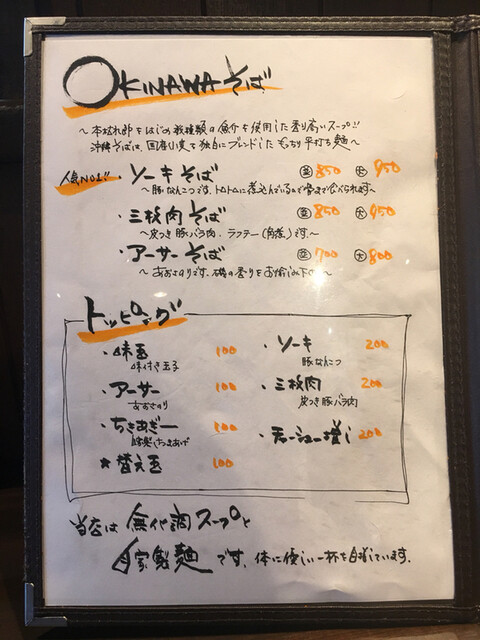 OKINAWAそば
～本枯れ節をはじめ数種類の魚介を使用した香り高いスープ!!
沖縄そばは、国産小麦を独自にブレンドしたもっちり平打ち麺～
人気NO1!!・ソーキそば 並 850 大 950
～豚なんこつです。トロトロに煮込んでいるので骨まで食べられます～
・三枚肉そば 並 850 大 950
～皮つき豚バラ肉、ラフテー(角煮)です～
・アーサーそば 並 700 大 800
～あおさのりです。磯の香りをお愉しみ下さい～
トッピング
・味玉 100
味付き玉子
・アーサー 100
あおさのり
・ちきあぎー 100
自家製さつまあげ
★替え玉 100
・ソーキ 200
豚なんこつ
・三枚肉 200
皮つき豚バラ肉
・チャーシュー増し 200
当店は無化調スープと
自家製麺です。体に優しい一杯を目指しています。